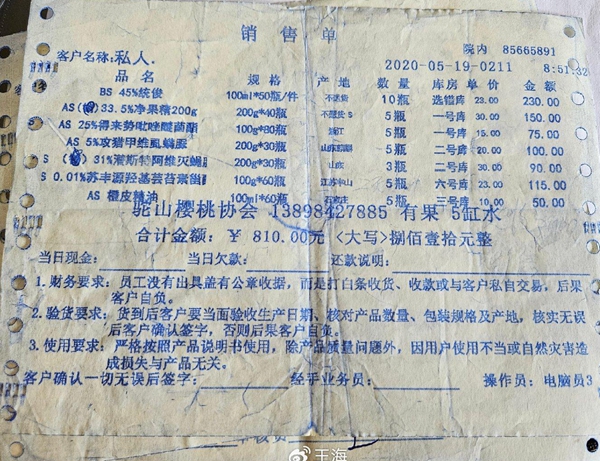 销 售 单
院内 85665891
客户名称:私人. 2020-05-19-0211 8:51:32
品 名 规 格 产 地 数 量 库 房 单 价 金 额
BS 45%统俊 100ml*50瓶/件 10瓶 选错库 23.00 230.00
AS 33.5%净果精200g 200g*40瓶 S 5瓶 一号库 30.00 150.00
AS 25%得来势吡唑醚菌酯 100g*80瓶 浙江 5瓶 一号库 15.00 75.00
AS 5%攻猎甲维虱螨脲 200g*30瓶 5瓶 二号库 20.00 100.00
S 31%莱斯特阿维灭蝇胺 200g*30瓶 山东 3瓶 二号库 30.00 90.00
S 0.01%苏丰源羟基芸苔素甾醇 100g*60瓶 5瓶 六号库 23.00 115.00
AS 橙皮精油 100ml*60瓶 石家庄 5瓶 三号库 10.00 50.00
驼山樱桃协会 13898427885 有果 5缸水
合计金额: ¥ 810.00元 <大写>捌佰壹拾元整
当日现金: 当日欠款: 还款说明:
1.财务要求: 员工没有出具盖有公章收据, 而是打白条收货、收款或与客户私自交易, 后果
客户自负。
2.验货要求: 货到后客户要当面验收生产日期、核对产品数量、包装规格及产地, 核实无误
后客户确认签字, 否则后果客户自负。
3.使用要求: 严格按照产品说明书使用, 除产品质量问题外, 因用户使用不当或自然灾害造
成损失与产品无关。
客户确认一切无误后签字: 经手业务员: 操作员: 电脑员3
王海